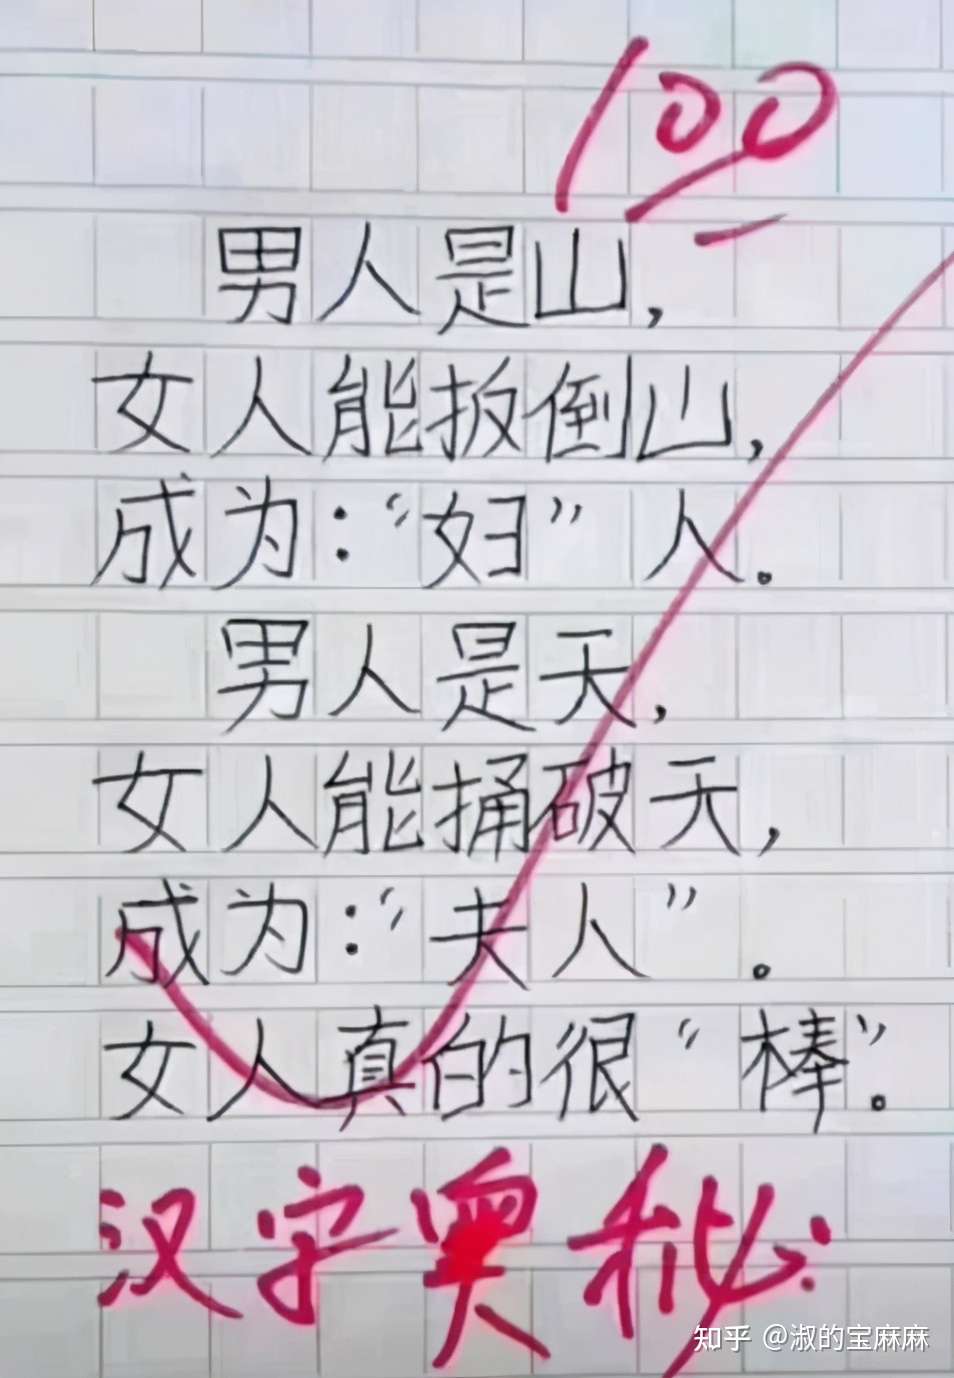 100
男人是山，
女人能扳倒山，
成为：“妇”人。
男人是天，
女人能捅破天，
成为：“夫人”。
女人真的很“棒”。
汉字奥秘
知乎 @淑的宝麻麻